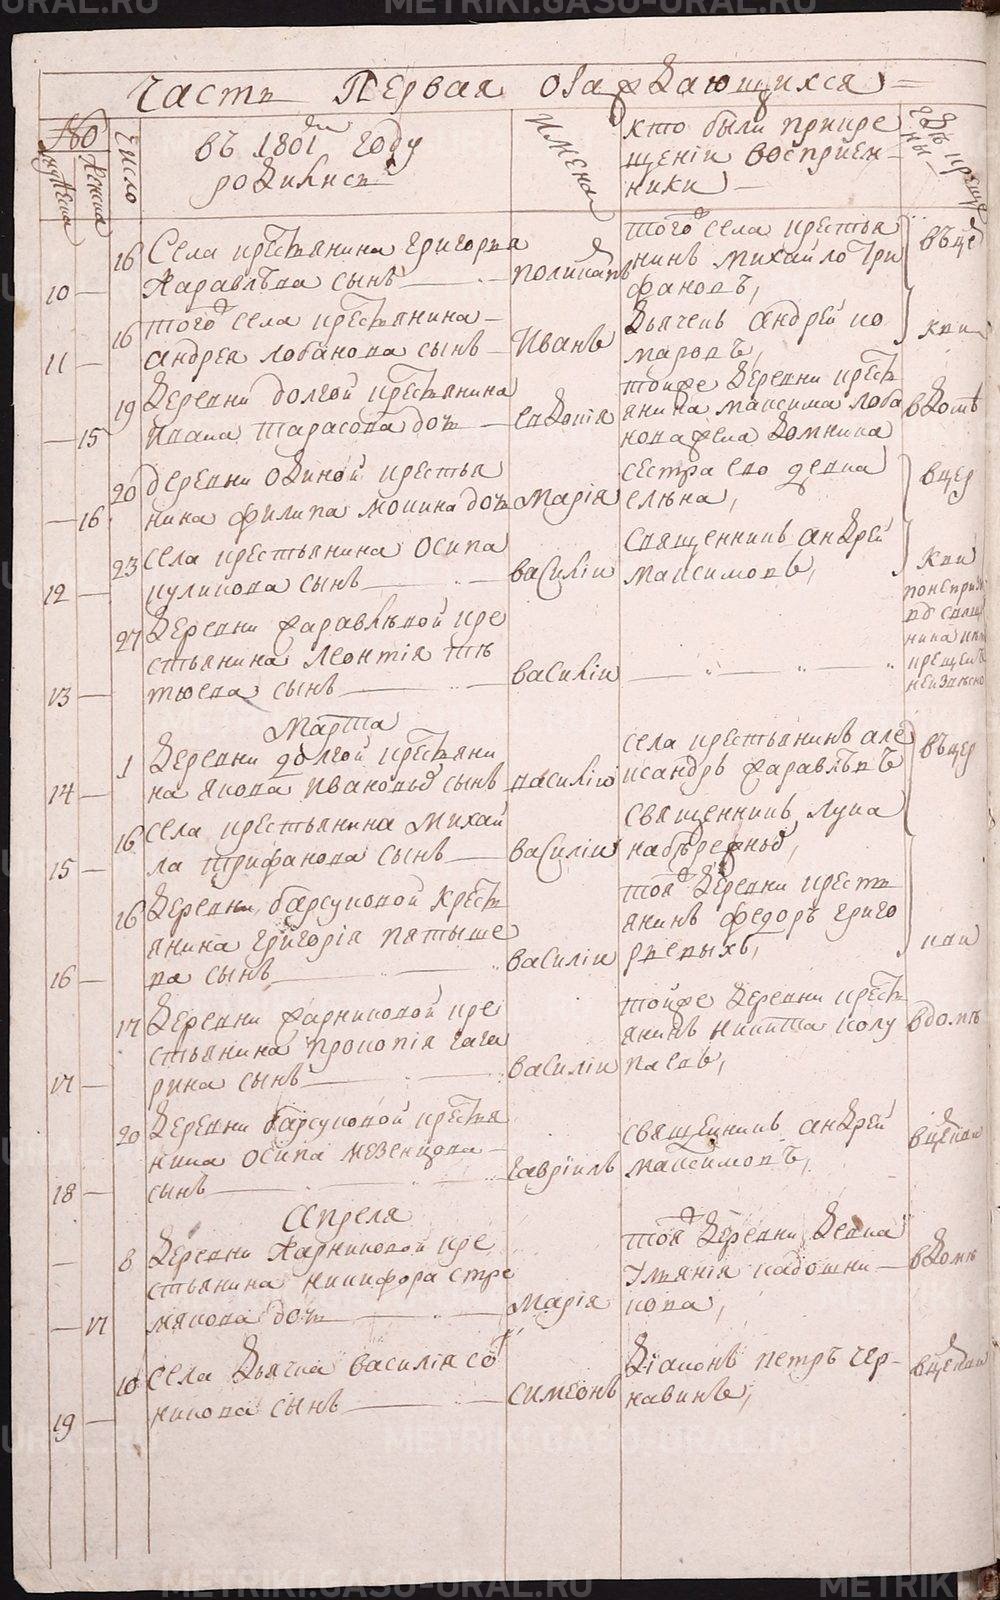 METRIKI.GASU-URAL.RU
Часть Первая о раждающихся
№
Мужеска
Женска
Число
въ 1801м году
родились
Имена
кто были прикре
щеніи восприем-
ники
гдѣ креще
ны
10
16
Села крестьянина Григорья
Журавлѣва сынъ
поликарпъ
того села крестья
нинъ михайло три
фановъ,
въ це
11
16
того села крестьянина
андрея лобанова сынъ
Иванъ
дьячекъ андрей ко
маровъ,
кви
15
19
деревни долгой крестьянина
ивана тарасова дочь
евдокія
тойже деревни кресть
янина максима лоба
нова жена домника
в домѣ
16
20
деревни одиной крестья
нина филипа мокина дочь
Марія
сестра его девка
елена,
в цер
12
23
села крестьянина осипа
куликова сынъ
василіи
священникъ андрей
максимовъ,
кви
13
27
деревни журавлевой кре
стьянина леонтія тѣ
тюева сынъ
василіи
Марта
14
1
деревни долгой крестьяни
на якова иванова сынъ
василіи
села крестьянинъ але
ксандръ журавлѣвъ
въ цер
15
16
села крестьянина михай
ла трифанова сынъ
василіи
священникъ лука
набережнов,
16
16
деревни барсуковой кресть
янина григорія патыше
ва сынъ
василіи
той деревни кресть
янинъ федоръ григо
рьевыхъ,
кви
17
17
деревни жарниковой кре
стьянина прокопія гага
рина сынъ
василіи
тойже деревни кресть
янинъ никита колу
паевъ,
в домѣ
18
20
деревни барсуковой крестья
нина осипа мезенцова
сынъ
гавріилъ
священникъ андрей
максимовъ,
в церкви
Апреля
17
8
деревни Жарниковой кре
стьянина никифора стре
мякова дочь
марія
той деревни девка
кова,
в домѣ
19
10
села дьячка василія со
никова сынъ
симеонъ
діаконъ петръ чер-
навинъ,
в церкви
METRIKI.GASU-URAL.RU